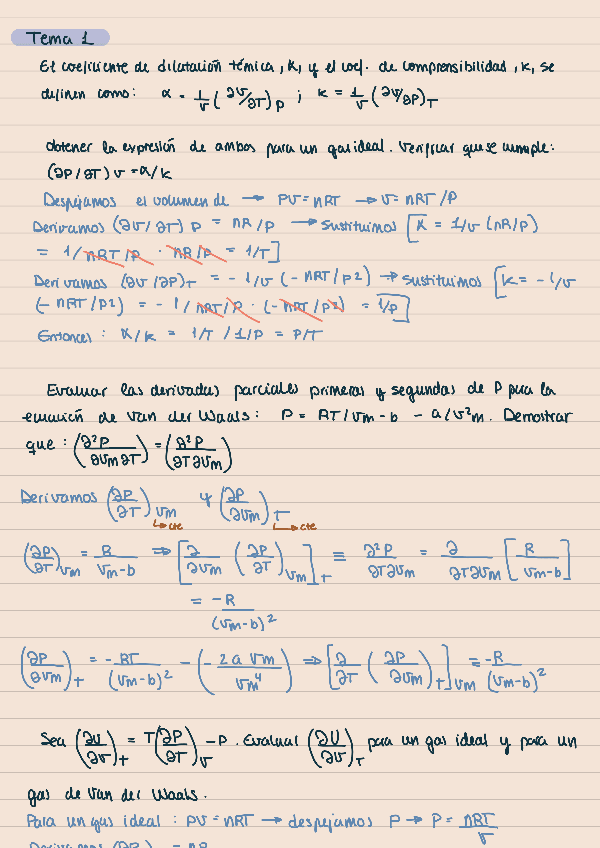 Tema 1
El coeficiente de dilatación témica, α, y el coef. de comprensibilidad, κ, se
definen como: α = 1/v (∂v/∂T)p ; κ = 1/v (∂v/∂P)T
obtener la expresión de ambos para un gas ideal. Verificar que se cumple:
(∂P/∂T)v = α/κ
Despejamos el volumen de → PV = nRT → v = nRT/P
Derivamos (∂v/∂T)P = nR/P → Sustituimos [α = 1/v (nR/P)
= 1/nRT/P · nR/P = 1/T]
Derivamos (∂v/∂P)T = - 1/v (- nRT/P²) → Sustituimos [κ = - 1/v
(- nRT/P²) = - 1/nRT/P · (- nRT/P²) = 1/P]
Entonces: α/κ = 1/T / 1/P = P/T
Evaluar las derivadas parciales primeras y segundas de P para la
ecuación de Van der Waals: P = RT/Vm-b - a/V²m. Demostrar
que: (∂²P/∂Vm∂T) = (∂²P/∂T∂Vm)
Derivamos (∂P/∂T)Vm y (∂P/∂Vm)T
↳cte ↳cte
(∂P/∂T)Vm = R/Vm-b ⇒ [∂/∂Vm (∂P/∂T)Vm]T ≡ ∂²P/∂T∂Vm = ∂/∂T∂Vm [R/Vm-b]
= -R/(Vm-b)²
(∂P/∂Vm)T = -RT/(Vm-b)² - (- 2a Vm/Vm⁴) ⇒ [∂/∂T (∂P/∂Vm)T]Vm = -R/(Vm-b)²
Sea (∂U/∂V)T = T(∂P/∂T)V - P. Evaluar (∂U/∂V)T para un gas ideal y para un
gas de Van der Waals.
Para un gas ideal: PV = nRT → despejamos P → P = nRT/V